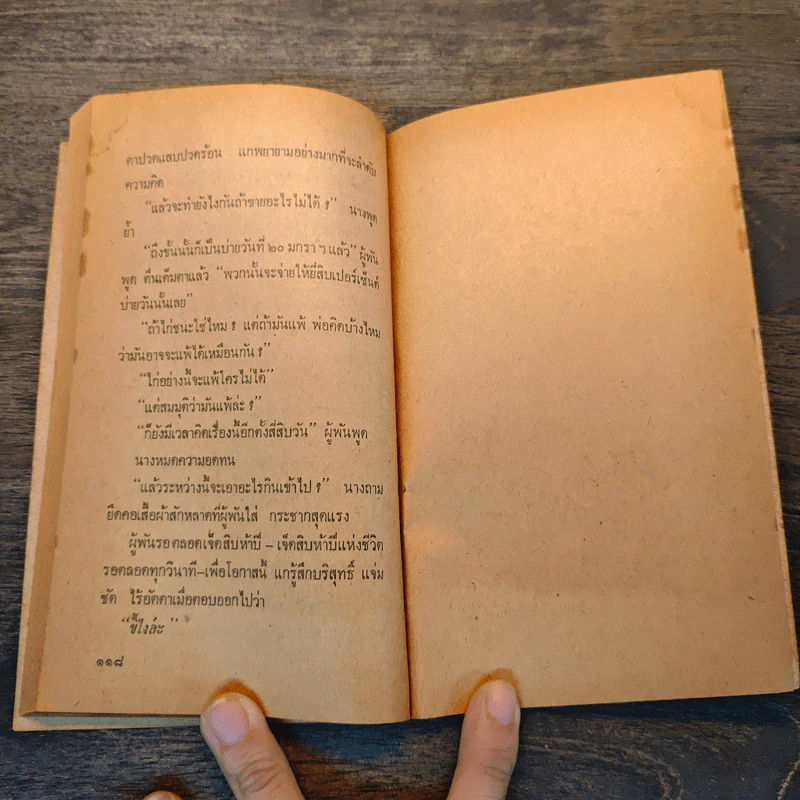 ตาปวดแสบปวดร้อน แกพยายามอย่างมากที่จะลำดับ
ความคิด
“แล้วจะทำยังไงกันถ้าขายอะไรไม่ได้ ?” นางพูด
ย้ำ
“ถึงขั้นนั้นก็เป็นบ่ายวันที่ ๒๐ มกรา ฯ แล้ว” ผู้พัน
พูด ตื่นเต็มตาแล้ว “พวกนั้นจะจ่ายให้ยี่สิบเปอร์เซ็นต์
บ่ายวันนั้นเลย”
“ถ้าไก่ชนะใช่ไหม ? แต่ถ้ามันแพ้ พ่อคิดบ้างไหม
ว่ามันอาจจะแพ้ได้เหมือนกัน ?”
“ไก่อย่างนี้จะแพ้ใครไม่ได้”
“แต่สมมุติว่ามันแพ้ล่ะ ?”
“ก็ยังมีเวลาคิดเรื่องนี้อีกตั้งสี่สิบวัน” ผู้พันพูด
นางหมดความอดทน
“แล้วระหว่างนี้จะเอาอะไรกินเข้าไป ?” นางถาม
ยึดคอเสื้อผ้าสักหลาดที่ผู้พันใส่ กระชากสุดแรง
ผู้พันรอตลอดเจ็ดสิบห้าปี – เจ็ดสิบห้าปีแห่งชีวิต
รอตลอดทุกวินาที–เพื่อโอกาสนี้ แกรู้สึกบริสุทธิ์ แจ่ม
ชัด ไร้อัตตาเมื่อตอบออกไปว่า
“ขี้ไงล่ะ”
๑๑๘